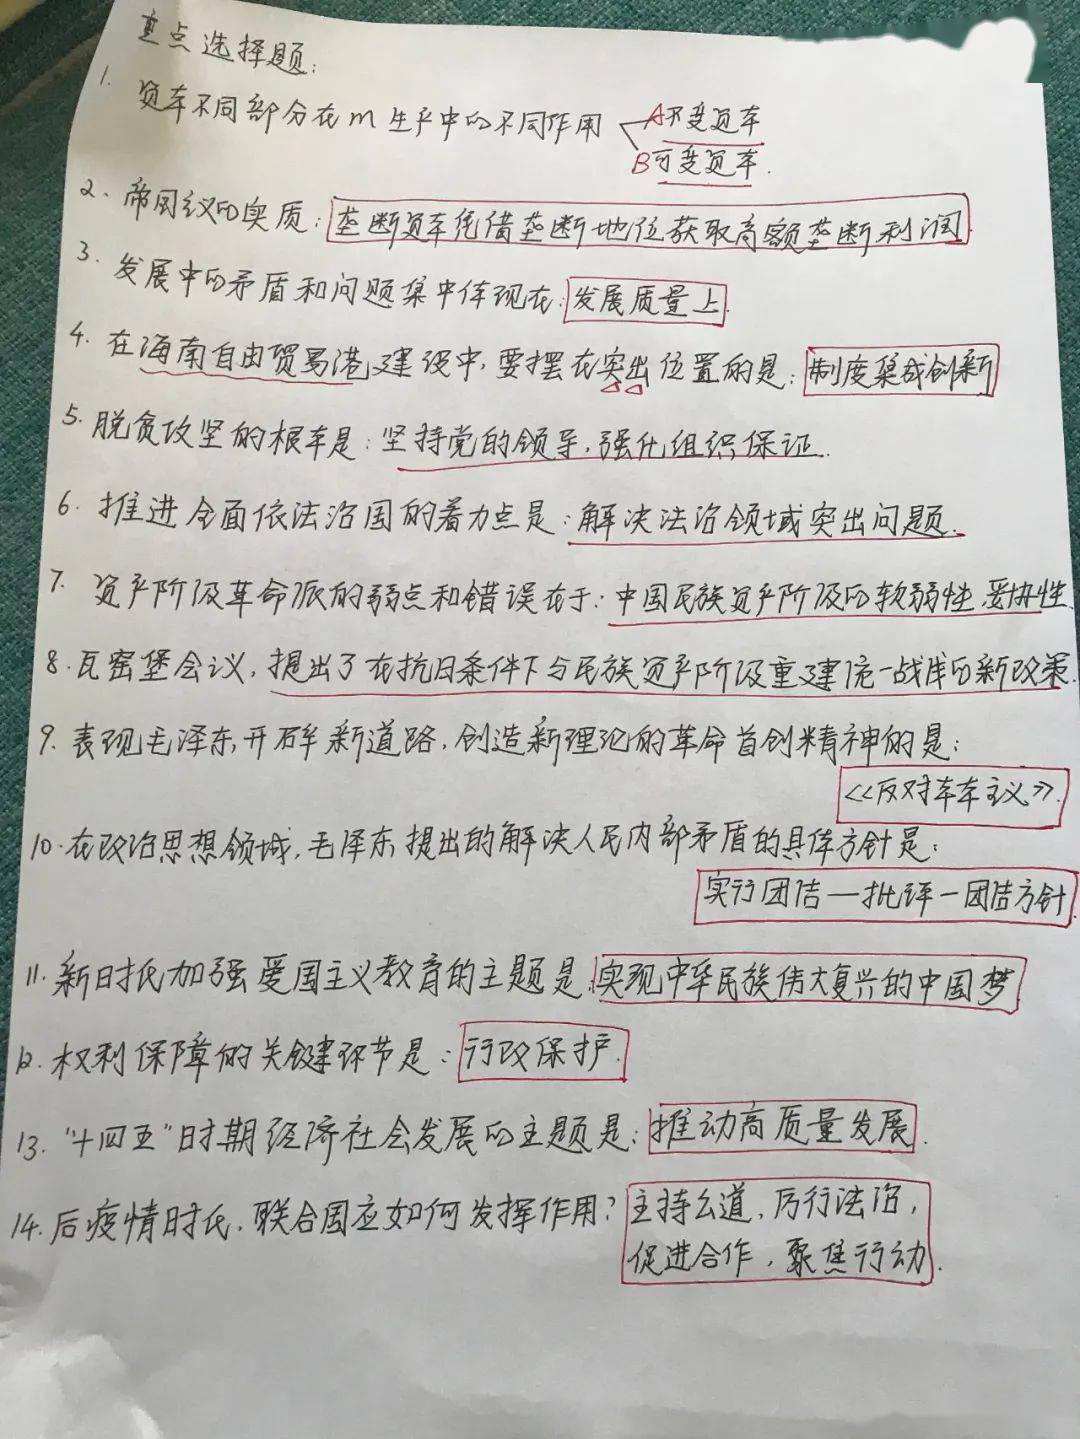 重点选择题:
1. 资本不同部分在m生产中的不同作用 A不变资本
B可变资本.
2. 帝国主义的实质: 垄断资本凭借垄断地位获取高额垄断利润
3. 发展中的矛盾和问题集中体现在: 发展质量上.
4. 在海南自由贸易港建设中,要摆在突出位置的是: 制度集成创新
5. 脱贫攻坚的根本是: 坚持党的领导,强化组织保证.
6. 推进全面依法治国的着力点是: 解决法治领域突出问题.
7. 资产阶级革命派的弱点和错误在于: 中国民族资产阶级的软弱性,妥协性.
8. 瓦窑堡会议, 提出了在抗日条件下与民族资产阶级重建统一战线的新政策.
9. 表现毛泽东,开辟新道路,创造新理论的革命首创精神的是:
《反对本本主义》.
10. 在政治思想领域,毛泽东提出的解决人民内部矛盾的具体方针是:
实行团结一批评一团结方针
11. 新时代加强爱国主义教育的主题是, 实现中华民族伟大复兴的中国梦
12. 权利保障的关键环节是: 行政保护.
13. "十四五"时期经济社会发展的主题是: 推动高质量发展.
14. 后疫情时代,联合国应如何发挥作用? 主持公道,厉行法治,
促进合作,聚焦行动.